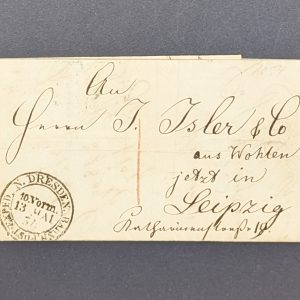 An
Herrn J. Isler & Co
aus Wohlen
jetzt in
Leipzig
Katharinenstraße 19.
N. DRESDEN
10 Vorm
13 MAI